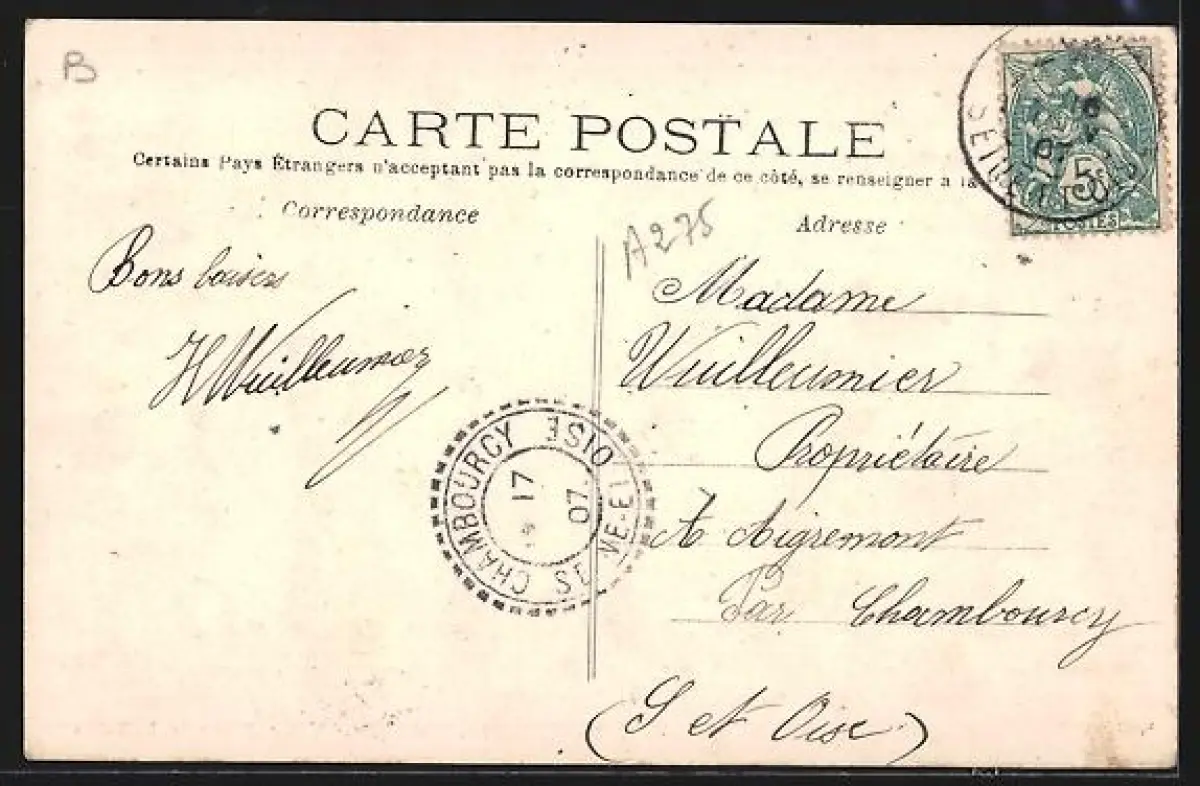 B
CARTE POSTALE
Certains Pays Étrangers n'acceptant pas la correspondance de ce côté, se renseigner a la
Correspondance
Adresse
A275
5c
POSTES
Bons baisers
H Wuilleumier
Madame
Wuilleumier
Propriétaire
A Aigremont
Par Chambourcy
(S. et Oise)
CHAMBOURCY SEINE-ET-OISE
17
07